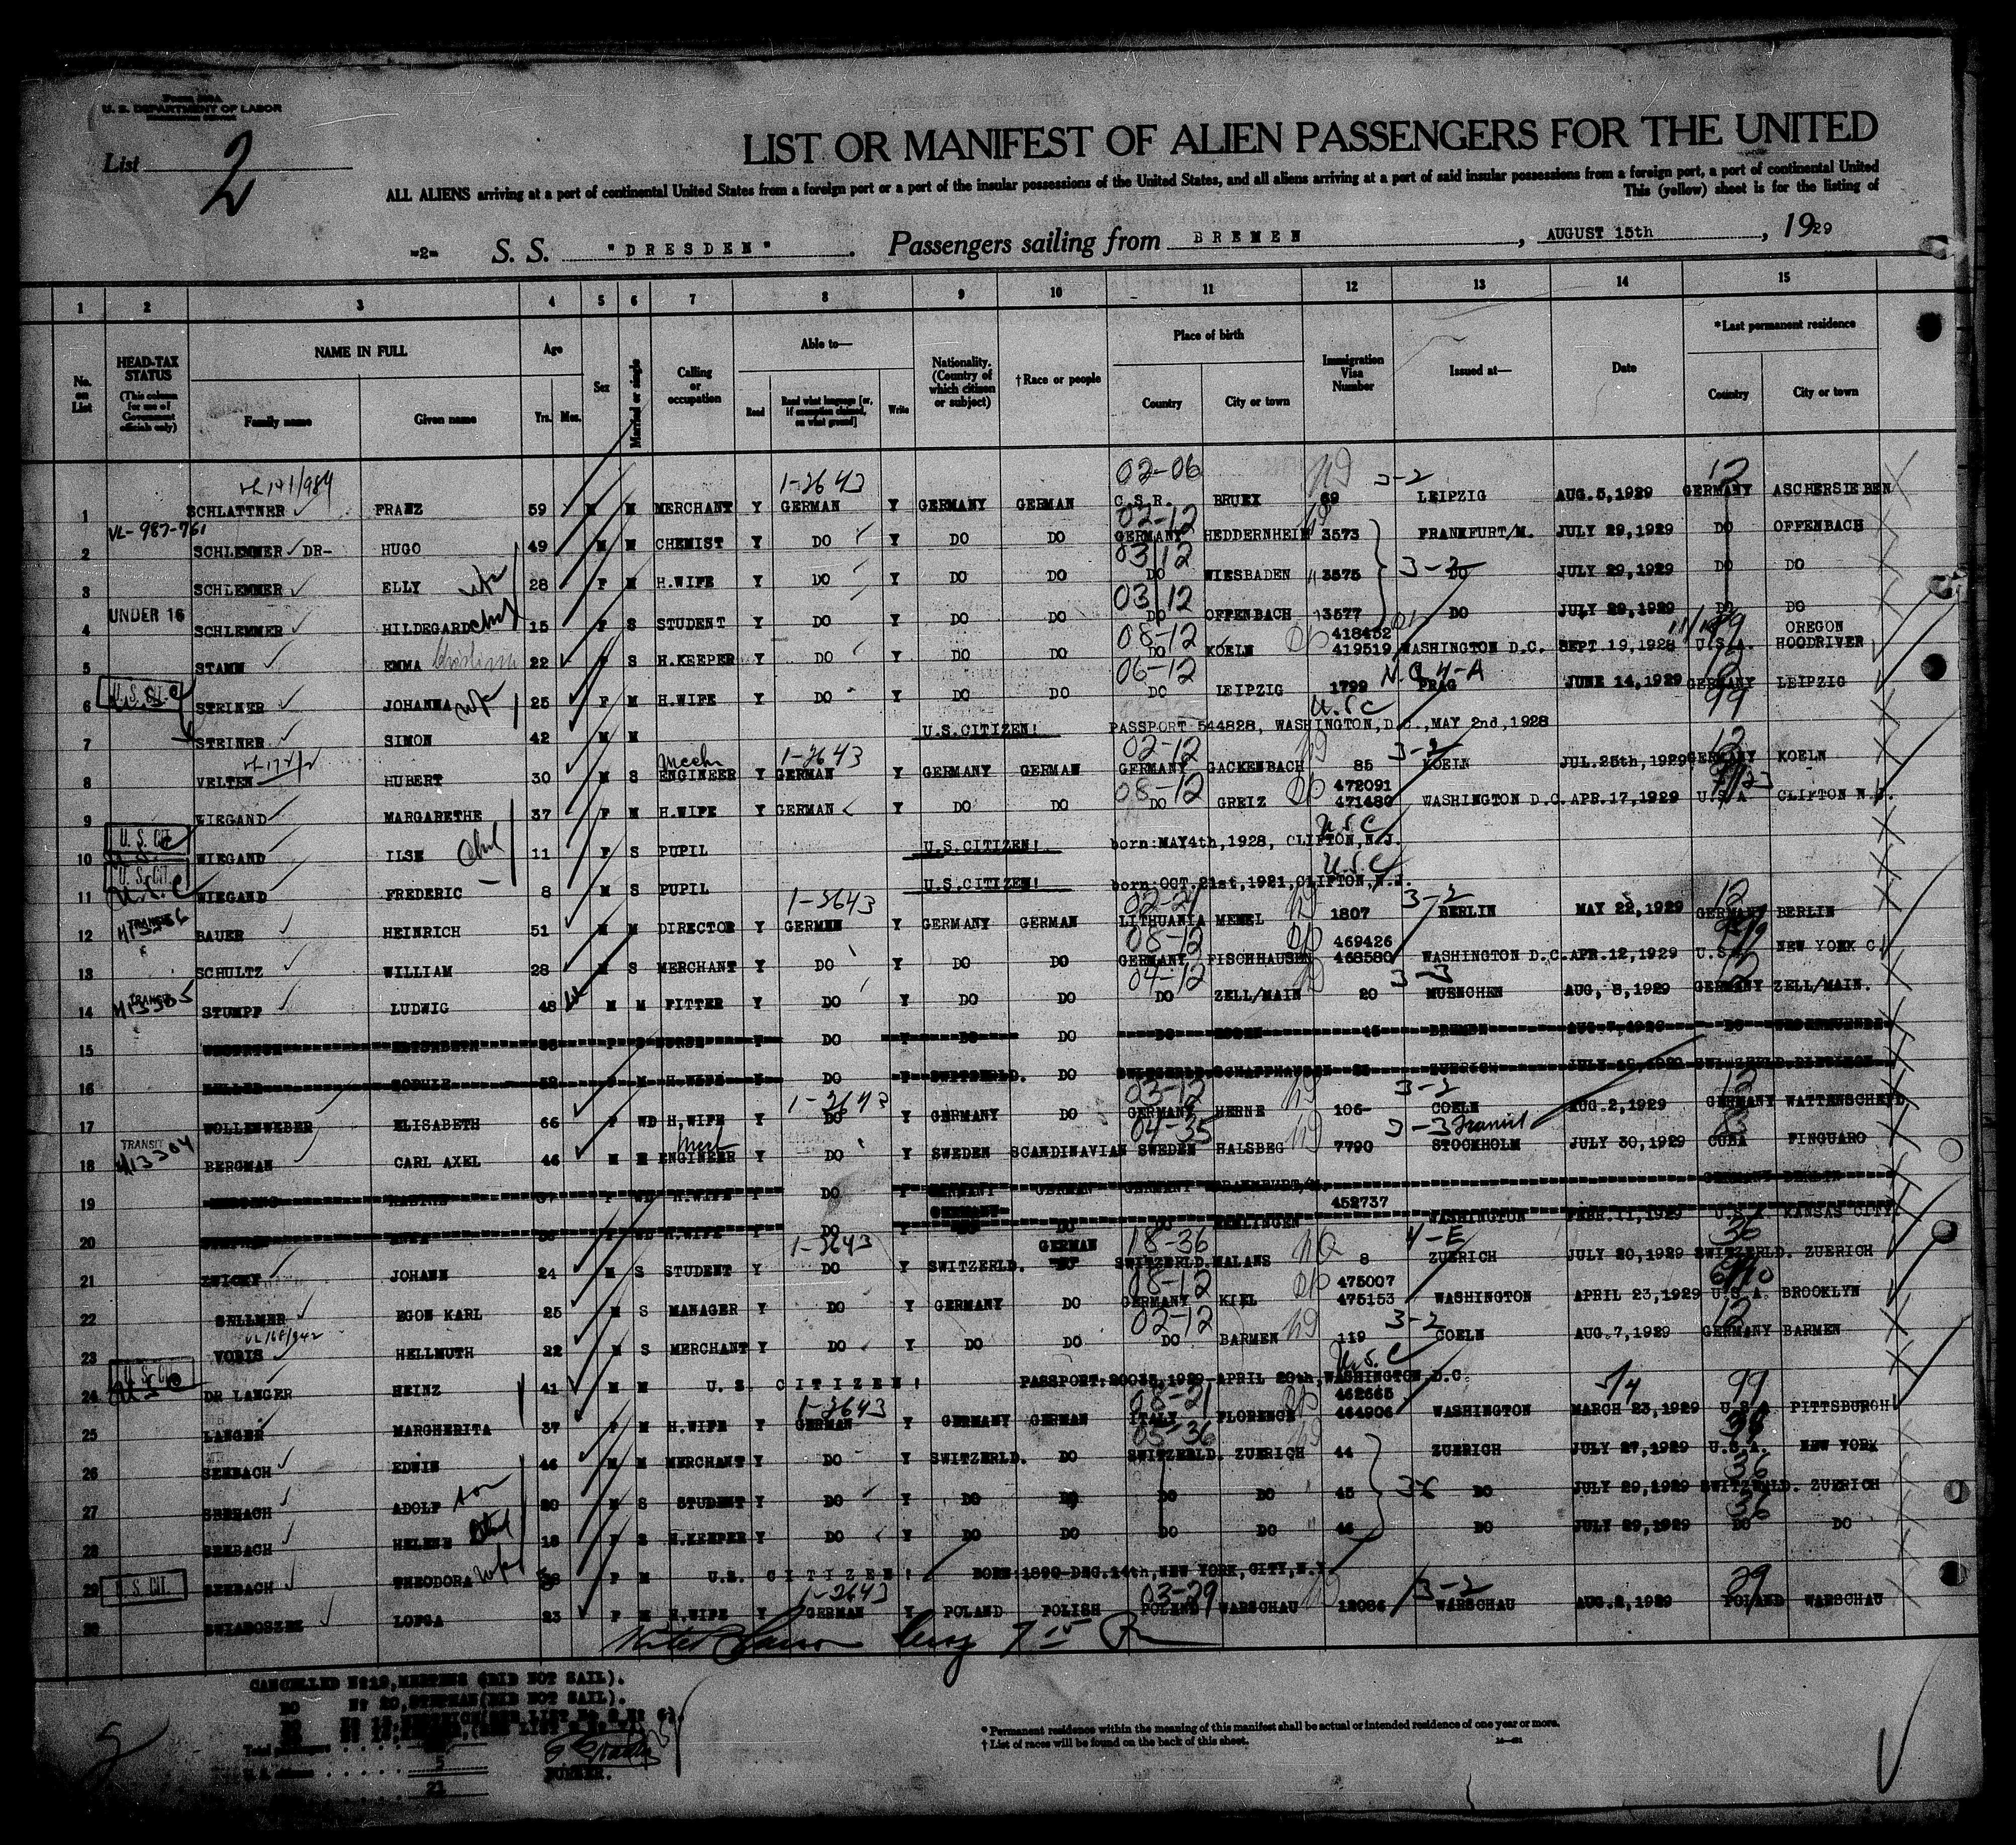 Form 500A
U. S. DEPARTMENT OF LABOR
IMMIGRATION SERVICE
List 2
LIST OR MANIFEST OF ALIEN PASSENGERS FOR THE UNITED
ALL ALIENS arriving at a port of continental United States from a foreign port or a port of the insular possessions of the United States, and all aliens arriving at a port of said insular possessions from a foreign port, a port of continental United
This (yellow) sheet is for the listing of
-2- S. S. "DRESDEN". Passengers sailing from BREMEN, AUGUST 15th, 1929
1 2 3 4 5 6 7 8 9 10 11 12 13 14 15
No. on List
HEAD-TAX STATUS
(This column for use of Government officials only)
NAME IN FULL
Family name Given name
Age
Yrs. Mos.
Sex
Married or single
Calling or occupation
Able to—
Read Read what language [or, if exemption claimed, on what ground] Write
Nationality. (Country of which citizen or subject)
†Race or people
Place of birth
Country City or town
Immigration Visa Number
Issued at—
Date
*Last permanent residence
Country City or town
1-2643 02-06 3-2 12
1 SCHLATTNER FRANZ 59 M M MERCHANT Y GERMAN Y GERMANY GERMAN C.S.R. BRUEX 69 LEIPZIG AUG.5,1929 GERMANY ASCHERSIEBEN
VL-987-761 02-12
2 SCHLEMMER DR- HUGO 49 M M CHEMIST Y DO Y DO DO GERMANY HEDDERNHEIM 3573 FRANKFURT/M. JULY 29,1929 DO OFFENBACH
03/12 3-2
3 SCHLEMMER ELLY wfe 28 F M H.WIFE Y DO Y DO DO DO WIESBADEN 3575 DO JULY 29,1929 DO DO
UNDER 16 03/12
4 SCHLEMMER HILDEGARD chd 15 F S STUDENT Y DO Y DO DO DO OFFENBACH 3577 DO JULY 29,1929 DO DO
08-12 418452 OREGON
5 STAMM EMMA 22 F S H.KEEPER Y DO Y DO DO DO KOELN 419519 WASHINGTON D.C. SEPT.19,1928 U.S.A. HOODRIVER
U.S. Cit. 06-12 N.Q 4-A
6 STEINER JOHANNA wfe 25 F M H.WIFE Y DO Y DO DO DO LEIPZIG 1799 PRAG JUNE 14,1929 GERMANY LEIPZIG
U.S.C 99
7 STEINER SIMON 42 M M U.S.CITIZEN! PASSPORT 544828, WASHINGTON,D.C.,MAY 2nd,1928
Mech 1-2643 02-12 3-2 12
8 VELTEN HUBERT 30 M S ENGINEER Y GERMAN Y GERMANY GERMAN GERMANY GACKENBACH 85 KOELN JUL.25th,1929 GERMANY KOELN
08-12 472091
9 WIEGAND MARGARETHE 37 F M H.WIFE Y GERMAN Y DO DO DO GREIZ 471480 WASHINGTON D.C. APR.17,1929 U.S.A CLIFTON N.J.
U. S. CIT. U.S.C
10 WIEGAND ILSE Chd 11 F S PUPIL U.S.CITIZEN! born:MAY4th,1928, CLIFTON,N.J.
U. S. CIT. U.S.C U.S.C
11 WIEGAND FREDERIC 8 M S PUPIL U.S.CITIZEN! born:OCT.21st,1921,CLIFTON,N.J.
TRANSIT 1-2643 02-21 3-2 12
12 BAUER HEINRICH 51 M M DIRECTOR Y GERMAN Y GERMANY GERMAN LITHUANIA MEMEL 1807 BERLIN MAY 22,1929 GERMANY BERLIN
08-12 469426
13 SCHULTZ WILLIAM 28 M S MERCHANT Y DO Y DO DO GERMANY FISCHHAUSEN 468580 WASHINGTON D.C. APR.12,1929 U.S.A. NEW YORK C.
TRANSIT 04-12 3-3 12
14 STUMPF LUDWIG 48 M M FITTER Y DO Y DO DO DO ZELL/MAIN 20 MUENCHEN AUG, 8,1929 GERMANY ZELL/MAIN.
15 DO DO
16 DO DO
1-2643 03-12 3-2 12
17 WOLLENWEBER ELISABETH 66 F WD H,WIFE Y DO Y GERMANY DO GERMANY HERNE 106- COELN AUG.2,1929 GERMANY WATTENSCHEYD
TRANSIT 413304 04-35 3-3 Transit
18 BERGMAN CARL AXEL 46 M M ENGINEER Y DO Y SWEDEN SCANDINAVIAN SWEDEN HALSBEG 7790 STOCKHOLM JULY 30,1929 CUBA FINGUARO
19 DO
452737
20 DO
GERMAN 1-2643 18-36 4-E 36
21 ZWICKY JOHANN 24 M S STUDENT Y DO Y SWITZERLD. SWITZERLD. MALANS 8 ZUERICH JULY 20,1929 SWITZERLD. ZUERICH
08-12 475007
22 SELLMER EGON KARL 25 M S MANAGER Y DO Y GERMANY DO GERMANY KIEL 475153 WASHINGTON APRIL 23,1929 U.S.A. BROOKLYN
02-12 3-2 12
23 VORIS HELLMUTH 22 M S MERCHANT Y DO Y DO DO DO BARMEN 119 COELN AUG.7,1929 GERMANY BARMEN
U. S. Cit. U.S.C
24 DR LANGER HEINZ 41 M M U.S. CITIZEN! PASSPORT:20035,1929-APRIL 20th,WASHINGTON,D.C.
1-2643 08-21 462665 99
25 LANGER MARGHERITA 37 F M H.WIFE Y GERMAN Y GERMANY GERMAN ITALY FLORENCE 464906 WASHINGTON MARCH 23,1929 U.S.A. PITTSBURGH
05-36
26 SEEBACH EDWIN 46 M M MERCHANT Y DO Y SWITZERLD. DO SWITZERLD. ZUERICH 44 ZUERICH JULY 27,1929 U.S.A. NEW YORK
36
27 SEEBACH ADOLF son 20 M S STUDENT Y DO Y DO DO DO DO 45 DO JULY 29,1929 SWITZERLD. ZUERICH
36
28 SEEBACH HELENE 18 F S H.KEEPER Y DO Y DO DO DO DO 46 DO JULY 29,1929 DO DO
29 U. S. CIT. SEEBACH THEODORA wfe F M U.S. CITIZEN! BORN:1890-DEC.14th,NEW YORK,CITY,N.Y.
1-2643 03-29 3-2 29
30 LOFSA 23 F M H.WIFE Y GERMAN Y POLAND POLISH POLAND WARSCHAU 12086 WARSCHAU AUG.2,1929 POLAND WARSCHAU
CANCELLED Nº19, (DID NOT SAIL).
DO Nº 20, STEPHAN (DID NOT SAIL).
Total passengers
5
U. S. citizens
21
PURSER.
* Permanent residence within the meaning of this manifest shall be actual or intended residence of one year or more.
† List of races will be found on the back of this sheet.